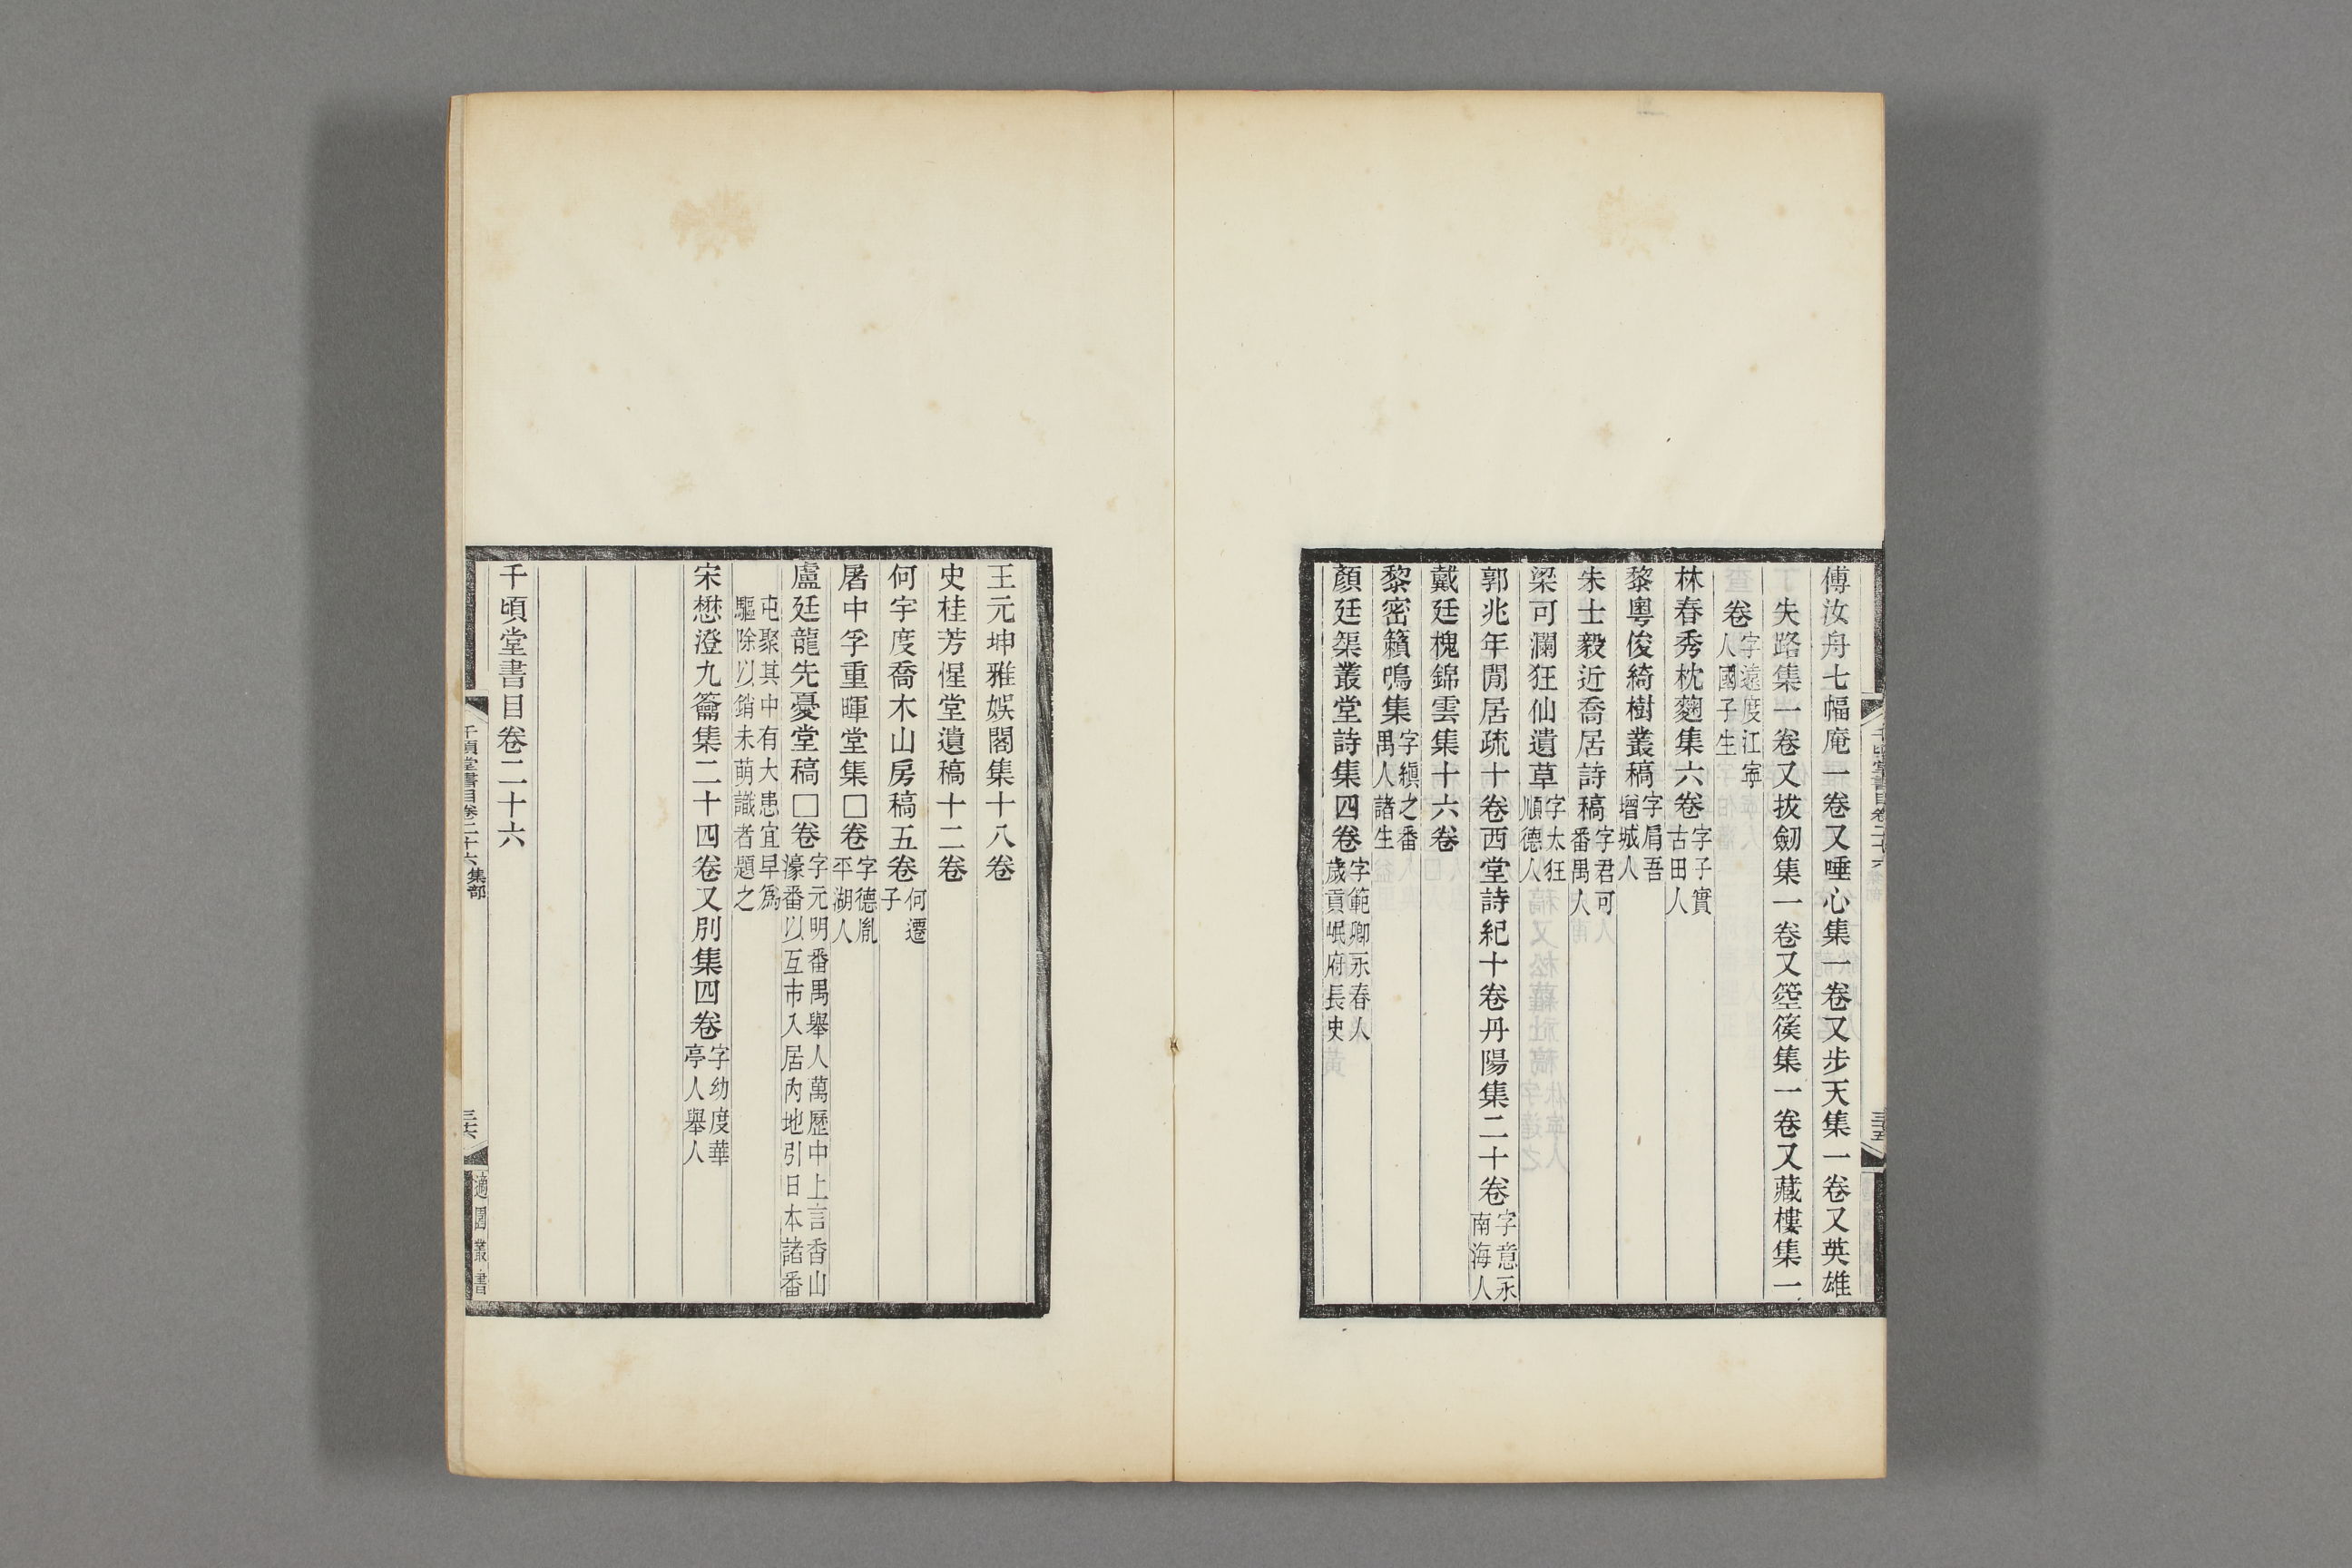 傅汝舟七幅庵一卷又唾心集一卷又步天集一卷又英雄
失路集一卷又拔劒集一卷又箜篌集一卷又藏樓集一
卷字遠度江寕人國子生
林春秀枕麴集六卷字子實古田人
黎粵俊綺樹叢稿字肩吾增城人
朱士毅近喬居詩稿字君可番禺人
梁可瀾狂仙遺草字太狂順德人
郭兆年閒居疏十卷西堂詩紀十卷丹陽集二十卷字意永南海人
戴廷槐錦雲集十六卷
黎密籟鳴集字縝之番禺人諸生
顏廷榘叢堂詩集四卷字範卿永春人歲貢岷府長史
王元坤雅娛閣集十八卷
史桂芳惺堂遺稿十二卷
何宇度喬木山房稿五卷何遷子
屠中孚重暉堂集□卷字德胤平湖人
盧廷龍先憂堂稿□卷字元明番禺舉人萬歷中上言香山濠番以互市入居內地引日本諸番
屯聚其中有大患宜早爲驅除以銷未萌識者題之
宋懋澄九籥集二十四卷又別集四卷字幼度華亭人舉人
千頃堂書目卷二十六
千頃堂書目卷二十六集部
三六
適園叢書